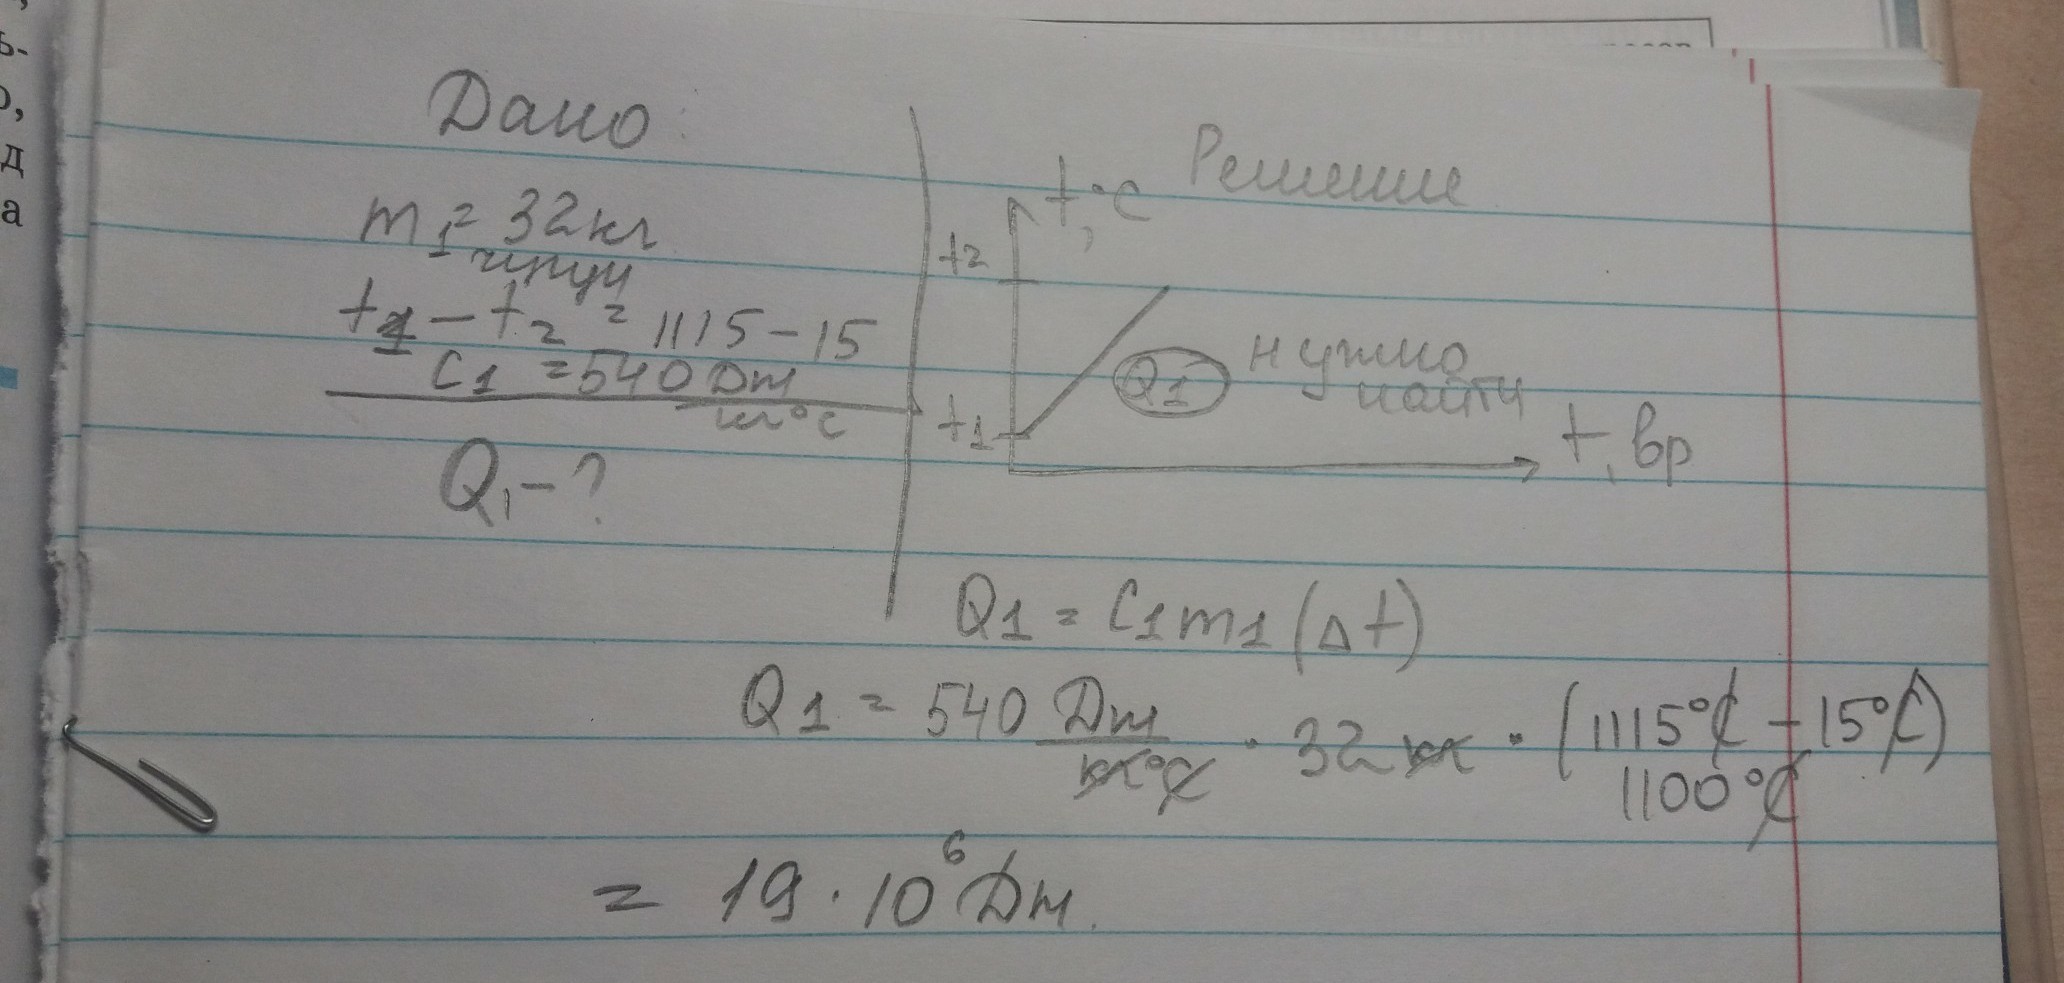 ь-
о,
д
а
Дано:
m1 = 32 кг
чугун
t1 - t2 = 1115 - 15
C1 = 540 Дж
кг°C
Q1 - ?
Решение
t, °C
t2
Q1 нужно
найти
t1
t, вр
Q1 = C1 m1 (Δt)
Q1 = 540 Дж/кг°C · 32 кг · (1115°C - 15°C)
1100°C
= 19 · 10⁶ Дж.